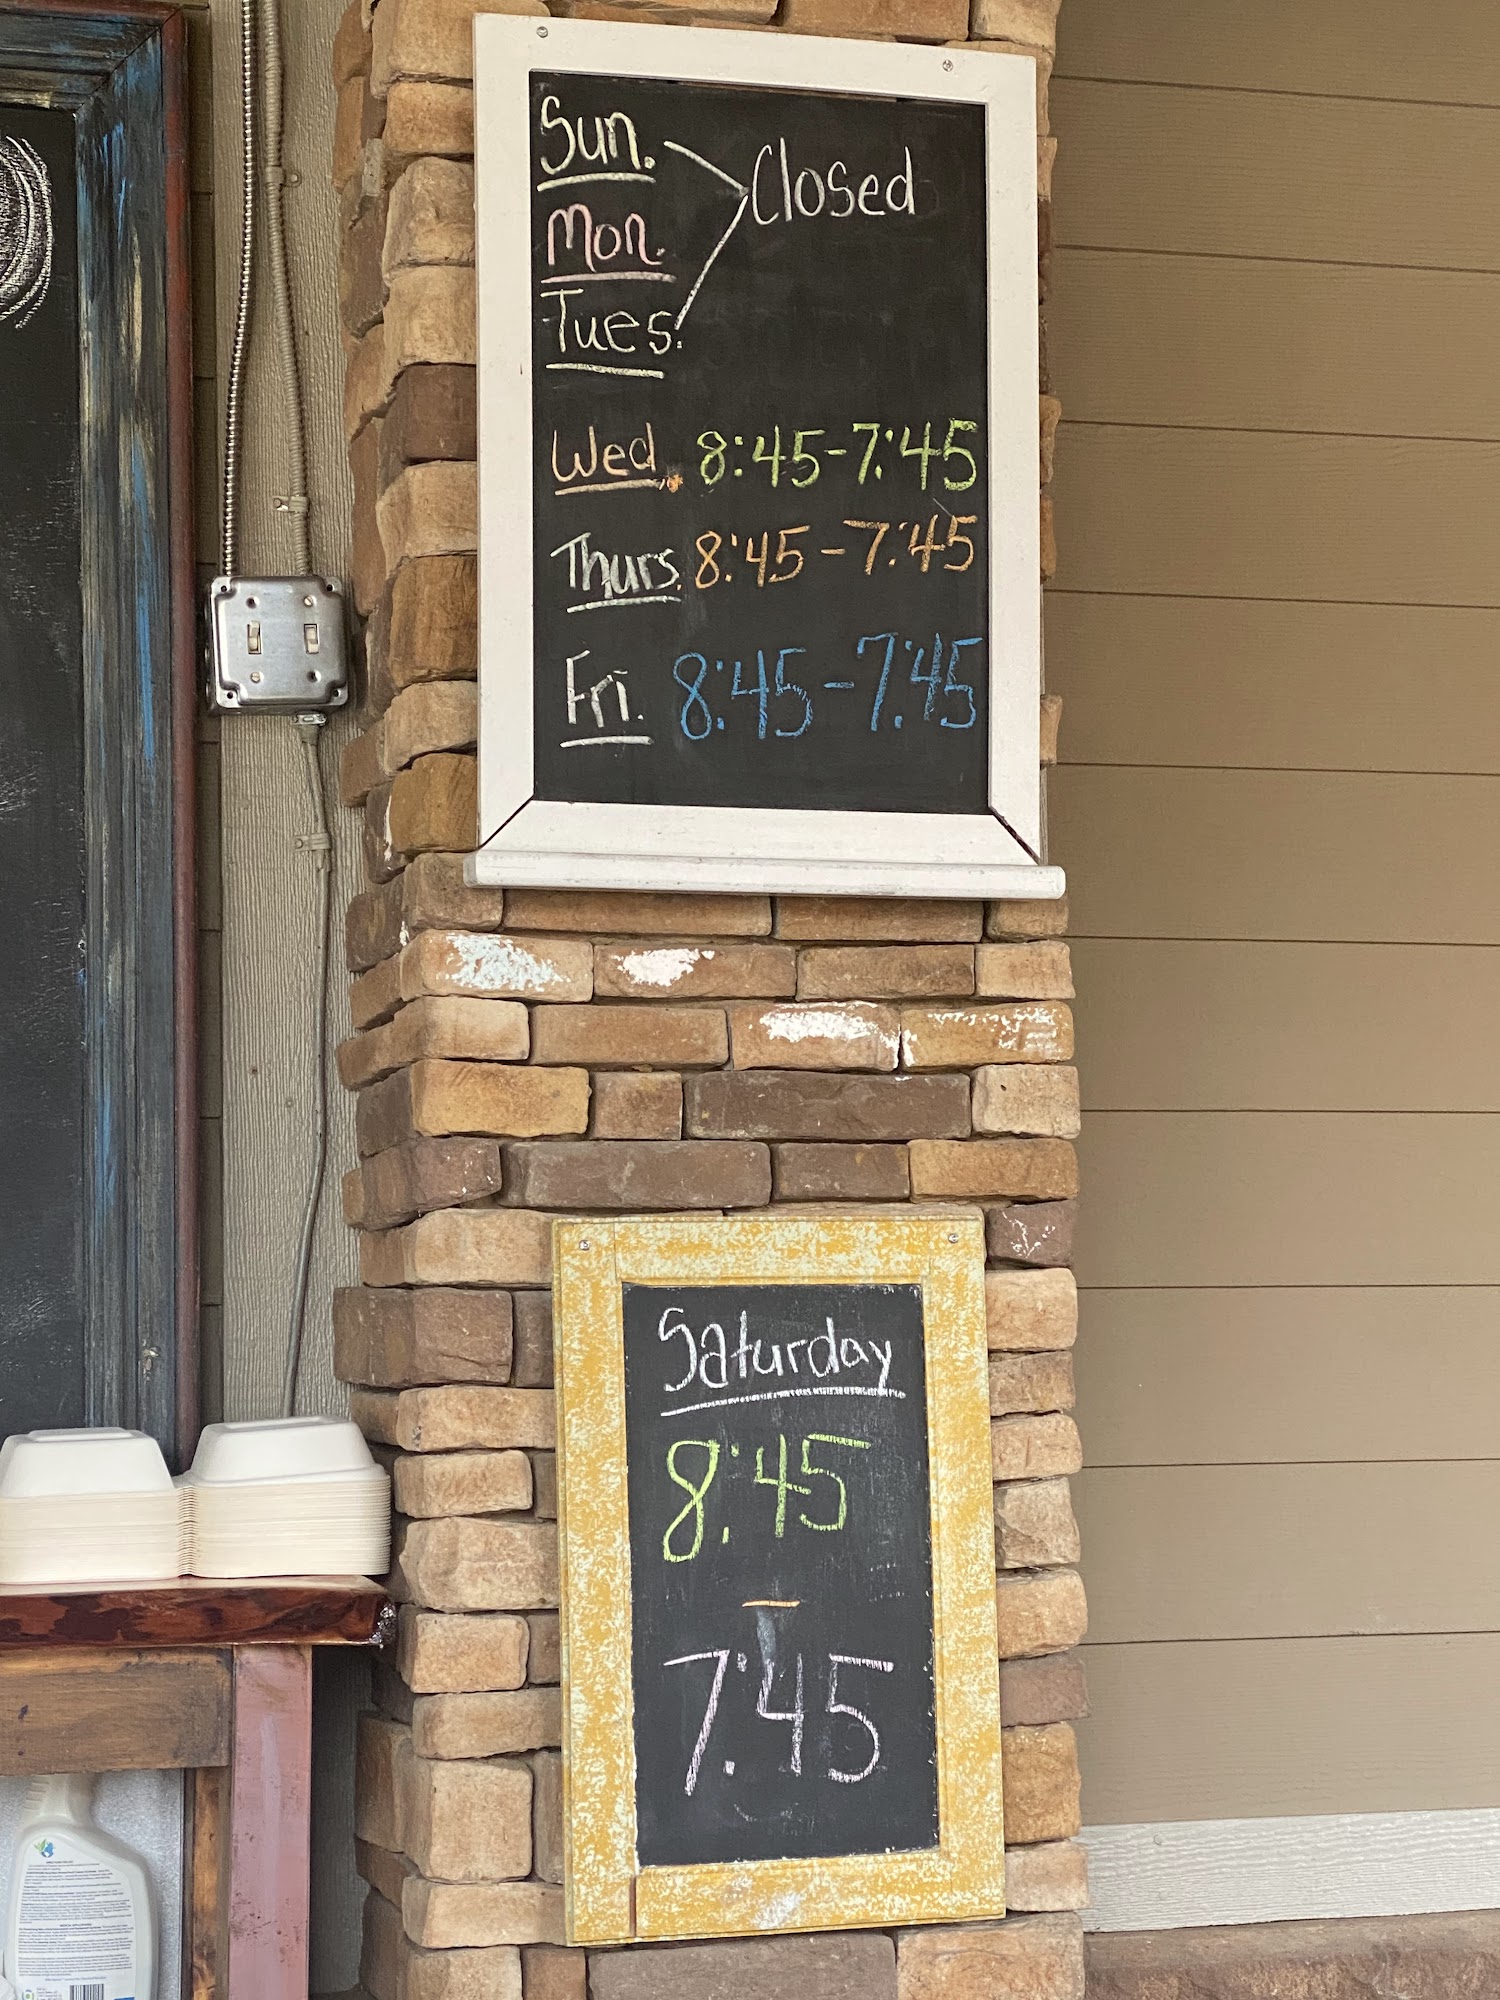 Sun.
Closed
Mon.
Tues.
Wed. 8:45-7:45
Thurs. 8:45-7:45
Fri. 8:45-7:45
Saturday
8:45
-
7:45